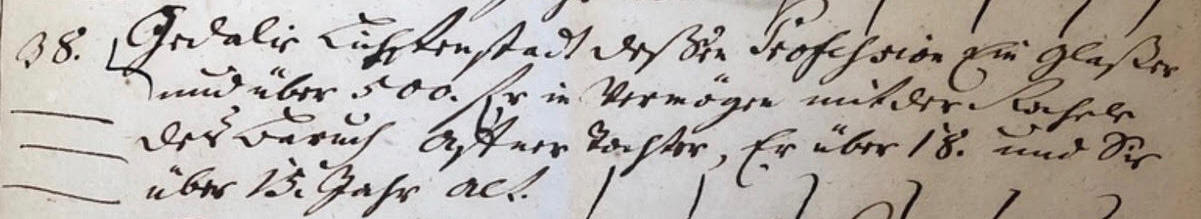 38. Gedalie Lichtenstadt deßen Profession Ein Glaßer
und über 500. fr in Vermögen mit der Rachele
des Baruch Tochter, Er über 18. und Sie
über 15. Jahr alt.